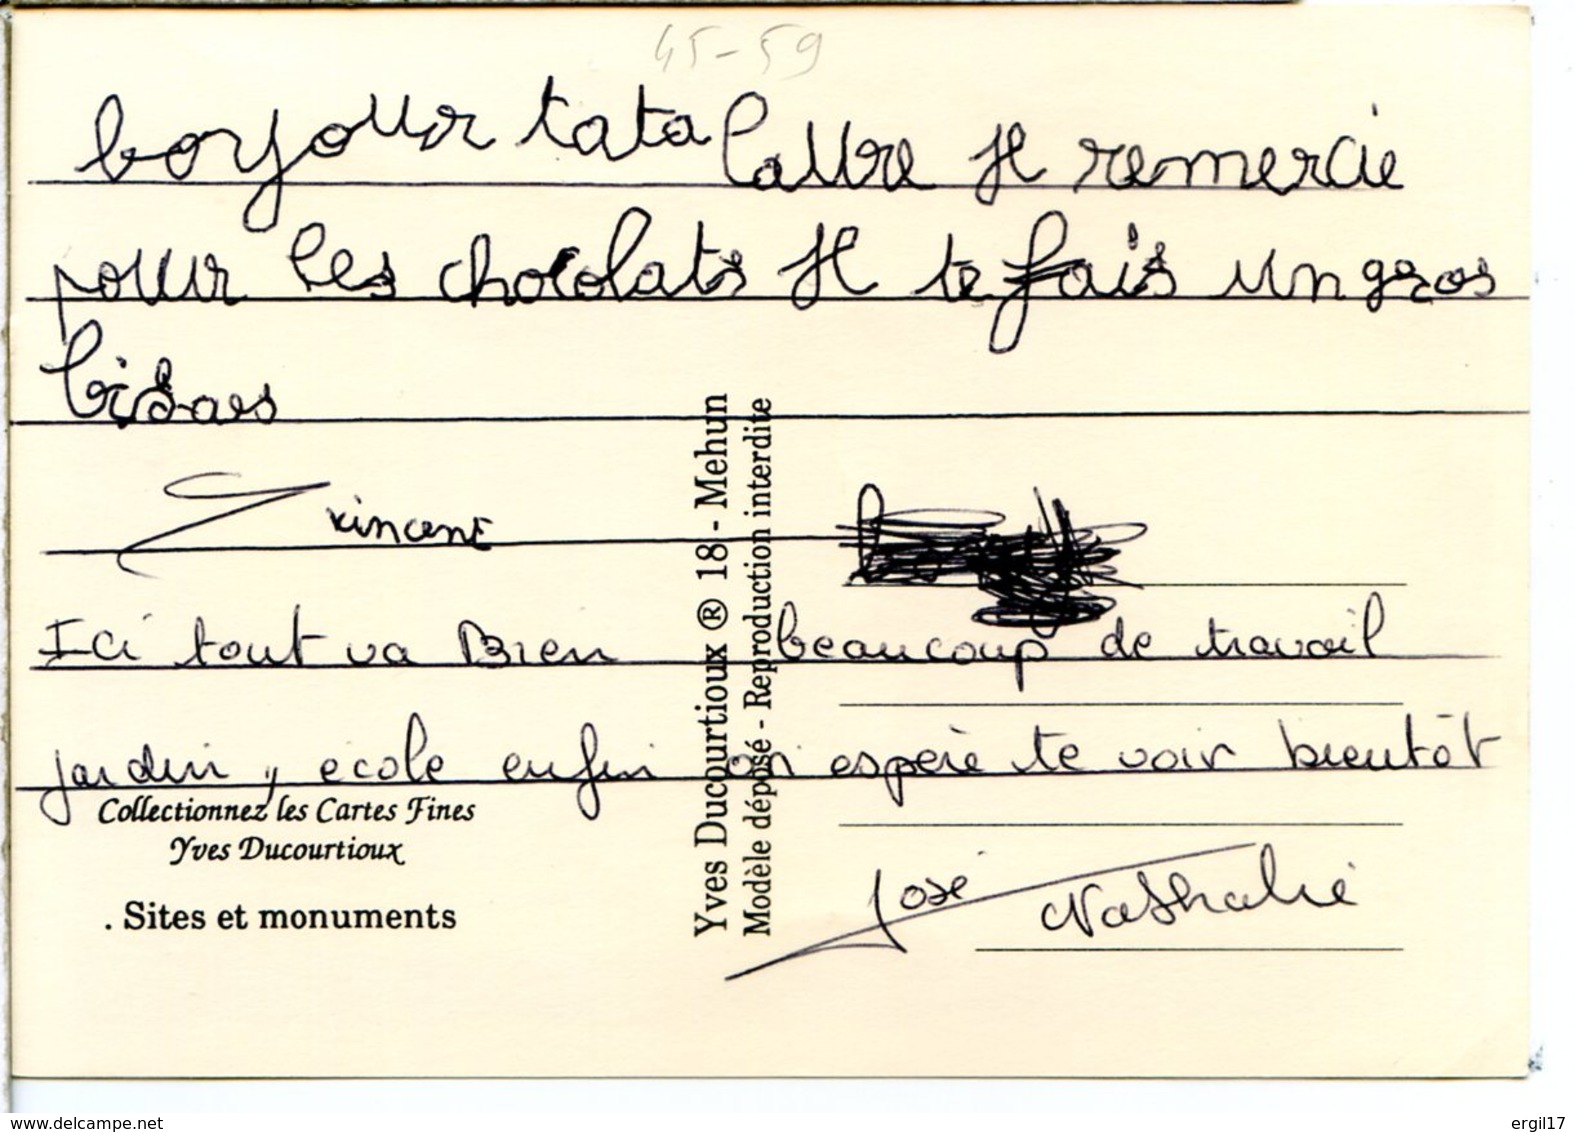 45-59
bonjour tata laure je remercie
pour les chocolats je te fais un gros
bisous
vincent
Ici tout va Bien beaucoup de travail
jardin, école enfin on espère te voir bientôt
José Nathalie
Yves Ducourtioux ® 18 - Mehun
Modèle déposé - Reproduction interdite
Collectionnez les Cartes Fines
Yves Ducourtioux
. Sites et monuments
www.delcampe.net
ergil17